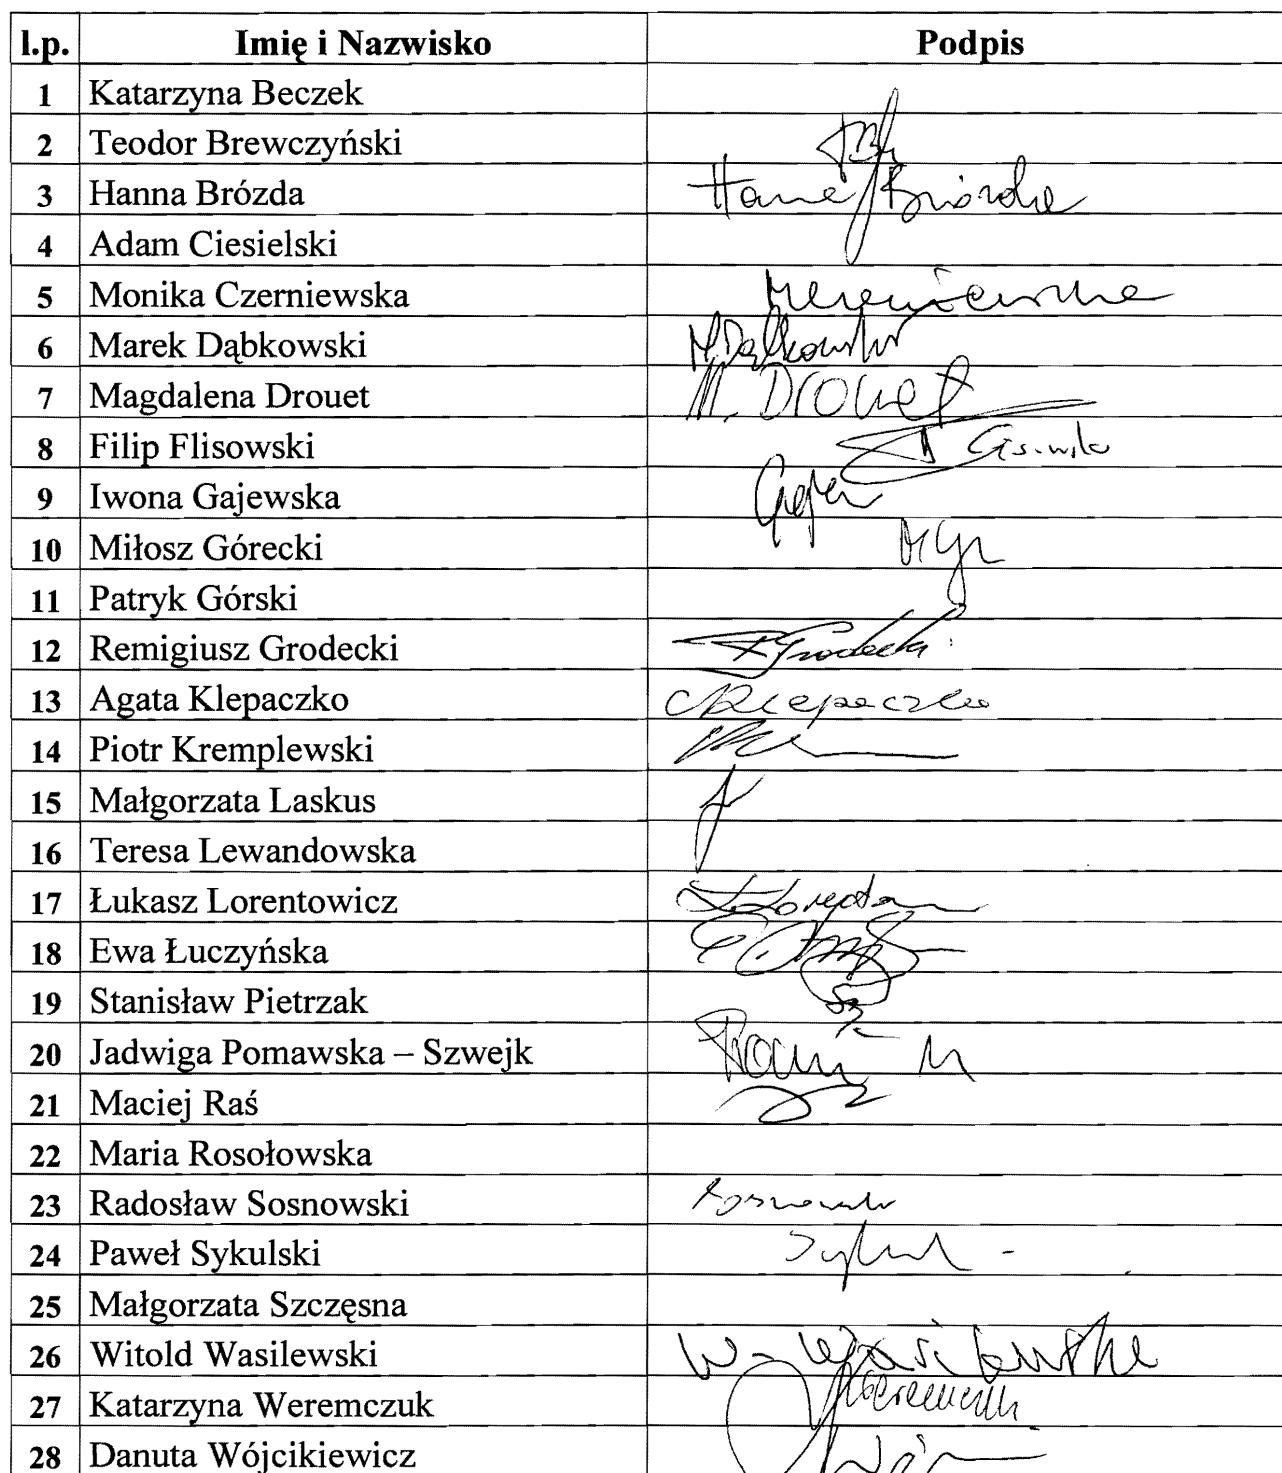 l.p. Imię i Nazwisko Podpis
1 Katarzyna Beczek
2 Teodor Brewczyński
3 Hanna Brózda Hanna Brózda
4 Adam Ciesielski
5 Monika Czerniewska
6 Marek Dąbkowski M. Dąbkowski
7 Magdalena Drouet M. Drouet
8 Filip Flisowski
9 Iwona Gajewska
10 Miłosz Górecki
11 Patryk Górski
12 Remigiusz Grodecki R Grodecki
13 Agata Klepaczko AKlepaczko
14 Piotr Kremplewski
15 Małgorzata Laskus
16 Teresa Lewandowska
17 Łukasz Lorentowicz
18 Ewa Łuczyńska
19 Stanisław Pietrzak
20 Jadwiga Pomawska – Szwejk
21 Maciej Raś
22 Maria Rosołowska
23 Radosław Sosnowski
24 Paweł Sykulski
25 Małgorzata Szczęsna
26 Witold Wasilewski
27 Katarzyna Weremczuk
28 Danuta Wójcikiewicz